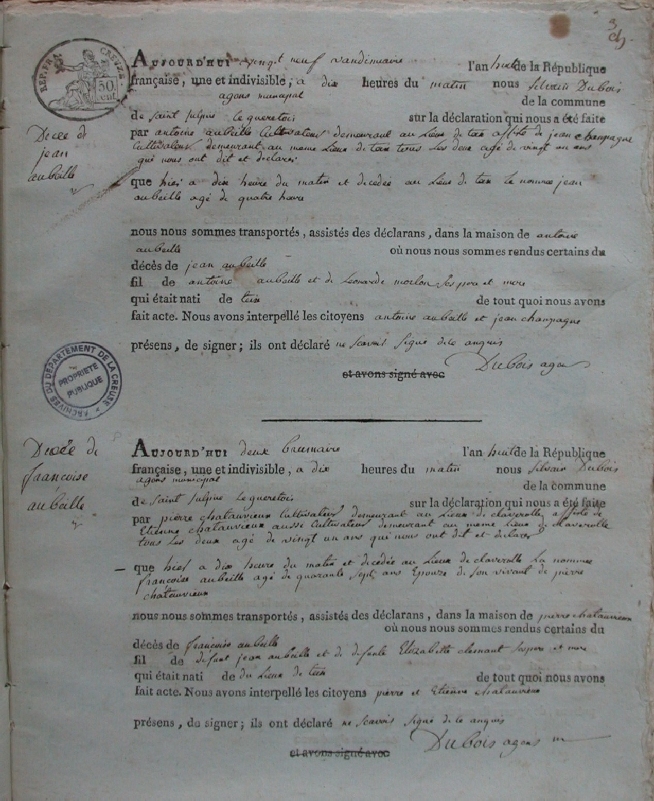 3
REP. FRA. CREUZE
50 cent.
AUJOURD'HUI vingt neuf vandimiaire l'an huit de la République
française, une et indivisible, a dix heures du matin nous Silvain Dubois
agens municipal de la commune
de Saint Sulpice le gueretois sur la déclaration qui nous a été faite
Decée di
jean
aubeille
par antoine aubeille Cultivateur demeurant au Lieux de tein assisté de jean champagne
Cultivateur demeurant au meme Lieux de tein tous Les deux agé de vingt un ans
qui nous ont dit et declaré
que hier a dix heure du matin et decedée au Lieux de tein Le nommée jean
aubeille agé de quatre heure
nous nous sommes transportés, assistés des déclarans, dans la maison de antoine
aubeille où nous nous sommes rendus certains du
décès de jean aubeille
fil de antoine aubeille et de Leonarde morlon Ses pere et mere
qui était nati de tein de tout quoi nous avons
fait acte. Nous avons interpellé les citoyens antoine aubeille et jean champagne
présens, de signer; ils ont déclaré ne scavoir Signé de le anquis
DuBois agen
et avons signé avec
ARCHIVES DU DÉPARTEMENT DE LA CREUSE
PROPRIÉTÉ
PUBLIQUE
Decée di
francoise
aubeille
AUJOURD'HUI deux brumaire l'an huit de la République
française, une et indivisible, a dix heures du matin nous Silvain Dubois
agens municipal de la commune
de Saint Sulpice le gueretois sur la déclaration qui nous a été faite
par pierre chatauvieux Cultivateur demeurant au Lieux de claverolle assisté de
Etienne chatauvieux aussi Cultivateur demeurant au meme Lieux de claverolle
tous Les deux agé de vingt un ans qui nous ont dit et declaré
que hier a dix heure du matin et decedée au Lieux de claverolle La nommee
françoise aubeille agé de quarante Sept ans Epouze de son vivant de pierre
chatauvieux
nous nous sommes transportés, assistés des déclarans, dans la maison de pierre chatauvieux
où nous nous sommes rendus certains du
décès de françoise aubeille
fil de defunt jean aubeille et de defunte Elizabette clemant Ses pere et mere
qui était nati de du Lieux de tein de tout quoi nous avons
fait acte. Nous avons interpellé les citoyens pierre et Etienne chatauvieux
présens, de signer; ils ont déclaré ne scavoir Signé de le anquis
DuBois agens
et avons signé avec